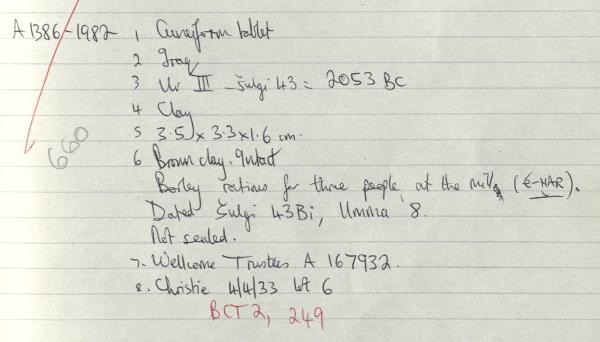 A 1386-1982 1 Cuneiform tablet
2 Iraq
3 Ur III - Šulgi 43 = 2053 BC
4 Clay
660
5 3.5 x 3.3 x 1.6 cm.
6 Brown clay. Intact
Barley rations for three people at the mill (É-HAR).
Dated Šulgi 43Bi, Umma 8.
Not sealed.
7. Wellcome Trustees A 167932.
8. Christie 4/4/33 lot 6
BCT 2, 249